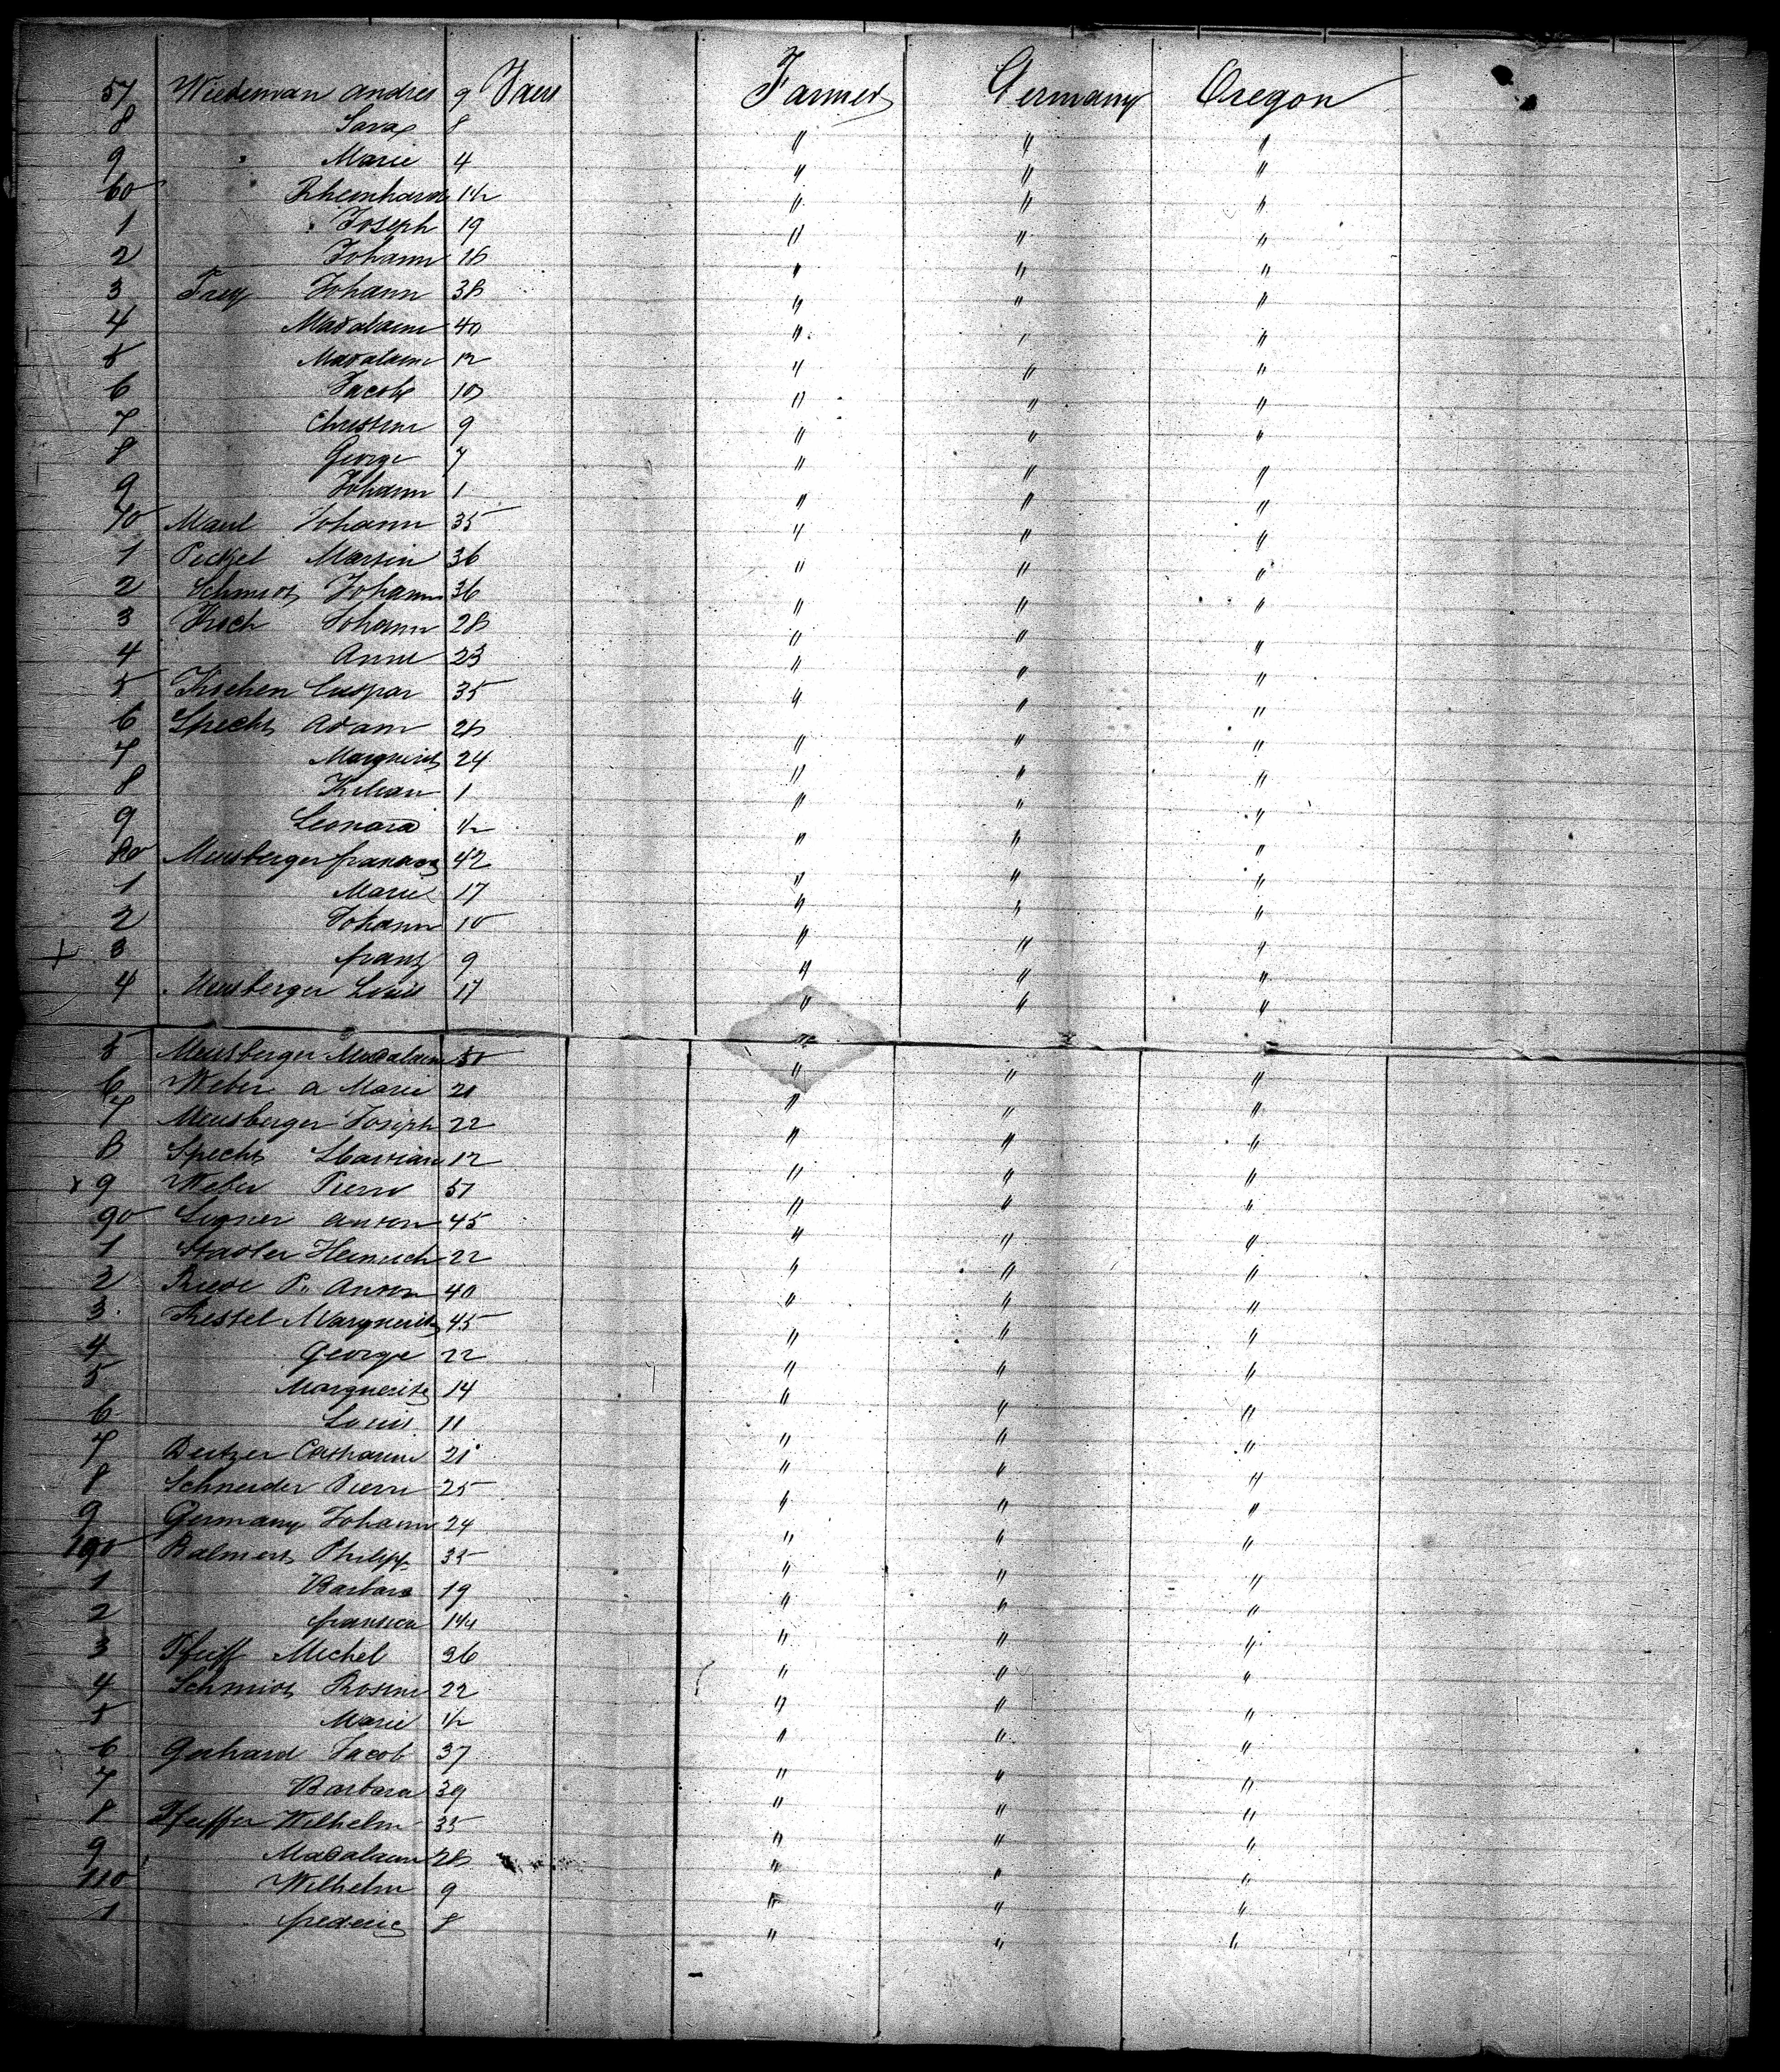 57 Wiedeman Andres 9 Jaers Farmer Germany Oregon
8 8 " " "
9 " Marie 4 " " "
60 Rheinhard 1/2 " " "
1 " Joseph 19 " " "
2 Johann 16 " " "
3 Frey Johann 38 " " "
4 Madalaine 40 " " "
5 Madalaine 12 " " "
6 Jacob 10 " " "
7 Christine 9 " " "
8 George 7 " " "
9 Johann 1 " " "
70 Maul Johann 35 " " "
1 Martin 36 " " "
2 Schmidt Johann 36 " " "
3 Koch Johann 28 " " "
4 Anne 23 " " "
5 Caspar 35 " " "
6 Specht Adam 28 " " "
7 Marguerite 24 " " "
8 Kilian 1 " " "
9 Leonard 1/2 " " "
80 Meusberger 42 " " "
1 Marie 17 " " "
2 Johann 10 " " "
3 franz 9 " " "
4 Meusberger Louis 17 " " "
5 Meusberger Madalaine 50 "
6 Weber A Marie 21 " " "
7 Meusberger Joseph 22 " " "
8 Specht 12 " " "
x 9 Weber Pierre 51 " " "
90 Anton 45 " " "
1 Stadler Heinrich 22 " " "
2 P. Anton 40 " " "
3 Kessel Marguerite 45 " " "
4 George 22 " " "
5 Marguerite 14 " " "
6 Louis 11 " " "
7 Catharine 21 " " "
8 Schneider Pierre 25 " " "
9 Germany Johann 24 " " "
100 Balmert Philipp 35 " " "
1 Barbara 19 " " "
2 " " "
3 Pfeiff Michel 26 " " "
4 Schmidt Rosine 22 " " "
5 Marie 1/2 " " "
6 Gerhard Jacob 37 " " "
7 Barbara 39 " " "
8 Pfeiffer Wilhelm 35 " " "
9 Madalaine 28 " " "
110 Wilhelm 9 " " "
1 frederic 8 " " "